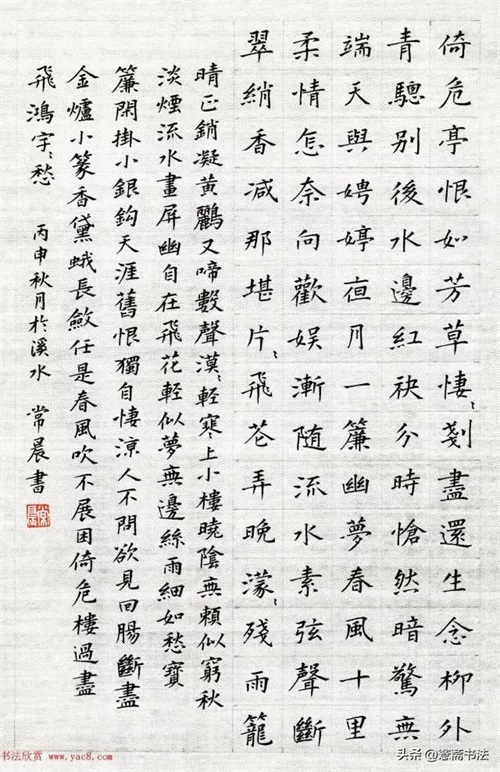 倚危亭恨如芳草悽〻剗盡還生念柳外
青驄別後水邊紅袂分時愴然暗驚無
端天與娉婷夜月一簾幽夢春風十里
柔情怎奈向歡娛漸隨流水素弦聲斷
翠綃香減那堪片〻飛花弄晚濛〻殘雨籠
晴正銷凝黃鸝又啼數聲漠〻輕寒上小樓曉陰無賴似窮秋
淡煙流水畫屏幽自在飛花輕似夢無邊絲雨細如愁寶
簾閑掛小銀鈎天涯舊恨獨自悽涼人不問欲見回腸斷盡
金爐小篆香黛蛾長斂任是春風吹不展困倚危樓過盡
飛鴻字〻愁 丙申秋月於溪水 常晨書
书法欣赏 www.yac8.com
头条@慧斋书法